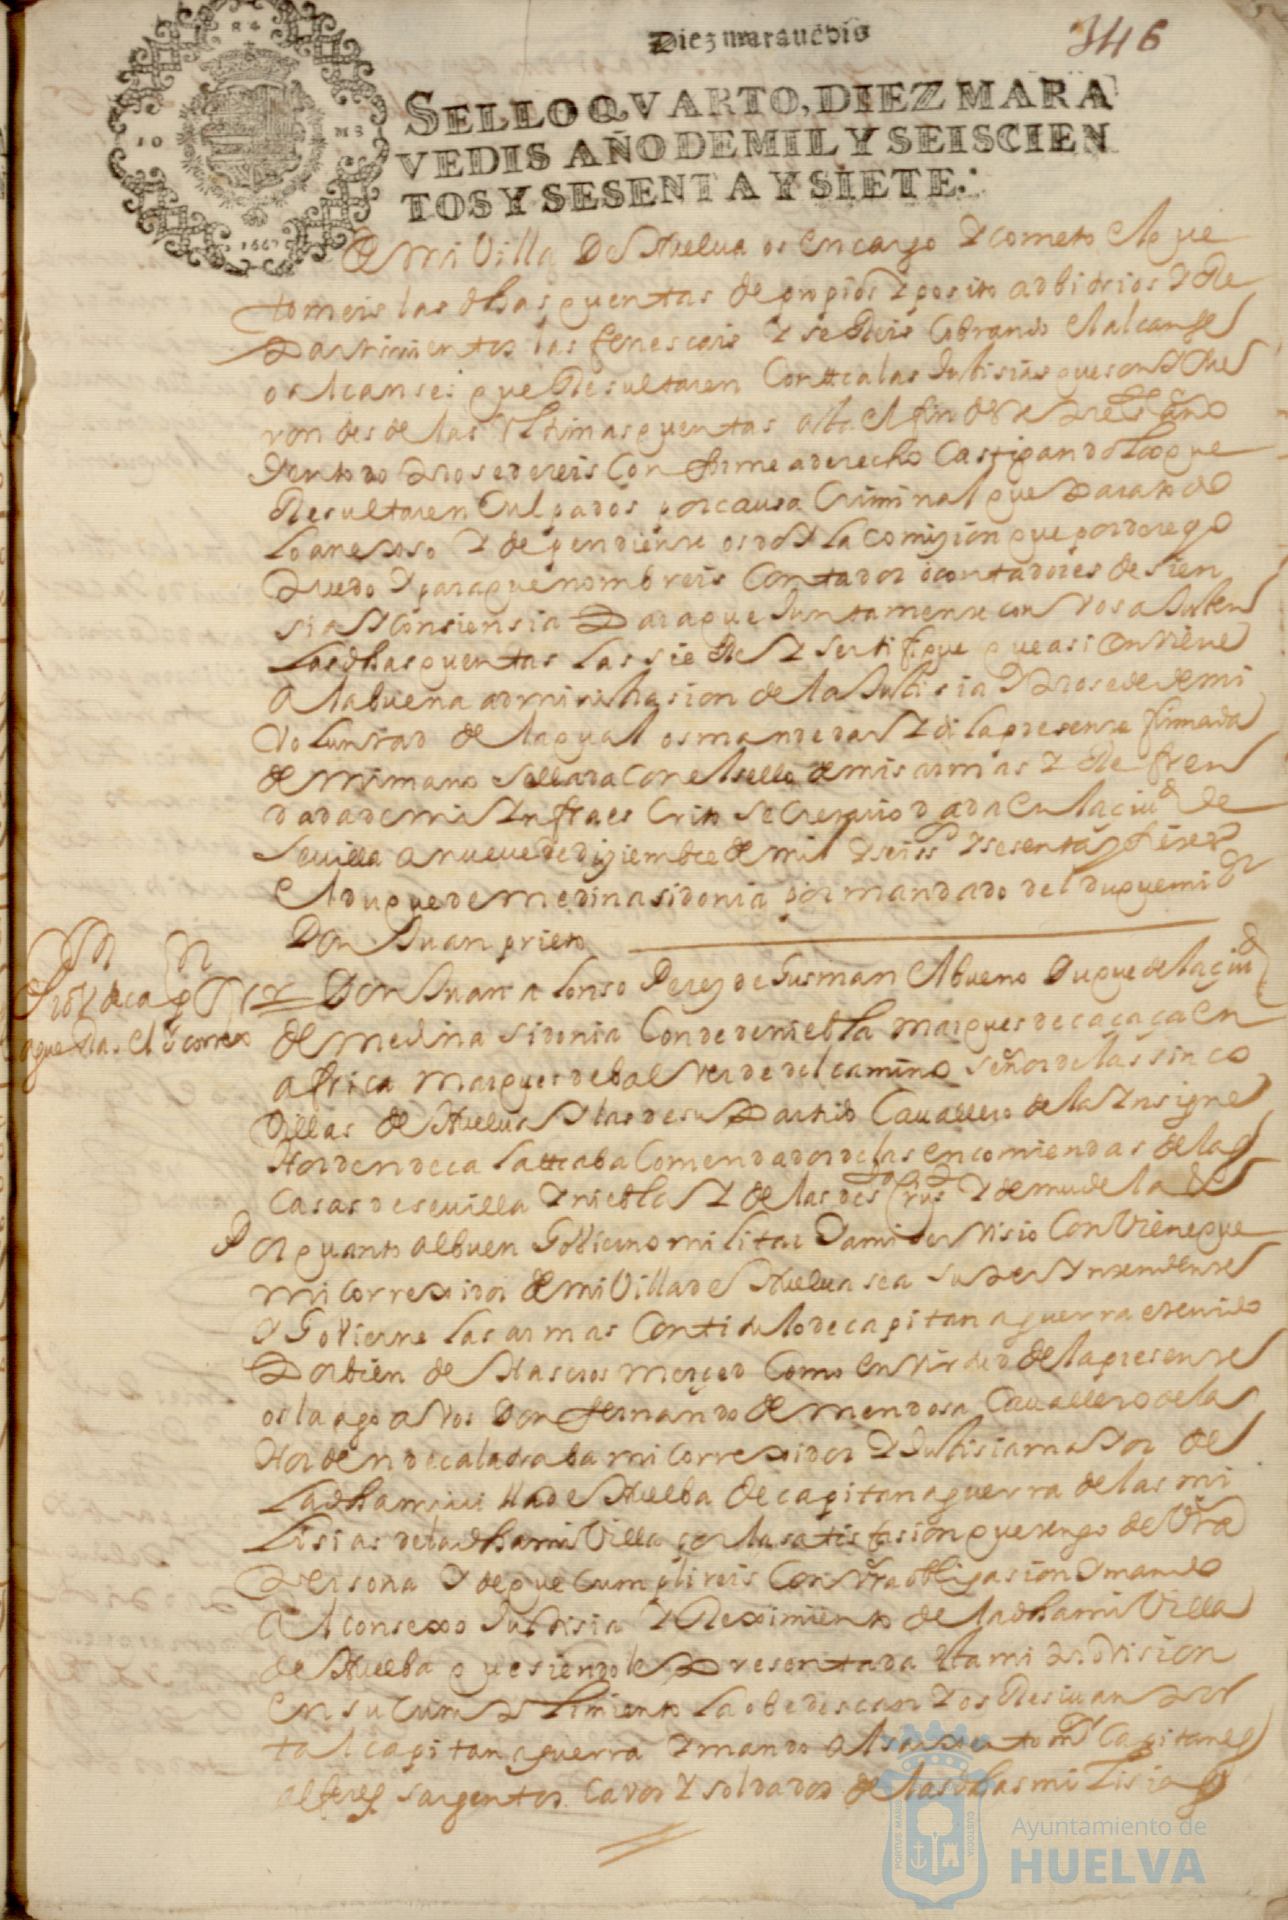 Diez marauedis
346
SELLO QVARTO, DIEZ MARA
VEDIS AÑO DE MIL Y SEISCIEN
TOS Y SESENTA Y SIETE.
1667
de mi Villa De Huelua os encargo Y cometo el que
tomeis las dhas quentas de propios Y posito adbitrios Y Re
partimientos las fenescais Y se Reis Cobrando el alcanse
o alcanses que Resultaren Contra las Justisias que son Y fue
ron desde las Ultimas quentas asta el fin deste presste año
Y en todo prosedereis Conforme a derecho Castigando los que
Resultaren Culpados por causa Criminal que para todo
lo anexso Y dependiente os doy la comision que por derecho
puedo Y para que nombreis Contador o contadores de sien
sia Y Consiensia para que Juntamente con Vos ajusten
las dhas quentas las sierre Y sertifique que asi conViene
a la buena administrasion de la Justisia Y prosede de mi
Voluntad de la qual os mande dar Y di la presente firmada
de mi mano Sellada con el sello de mis armas Y Refren
dada de mi Ynfraes Crito Secretario dada en la ciud de
Seuilla a nueve de diziembre de mil Y seiss Y sesenta y siete
el duque de medina sidonia por mandado del duque mi sr
Don Juan prieto
Don Juan alonso Perez de Gusman el bueno Duque de la ciud
de medina sidonia Conde de niebla marques de caçaça en
africa marques de balverde del camino señor de las sinco
Villas de Huelua Y las de su partido Cauallero de la Insigne
Horden de calattraba Comendador de las encomiendas de las
Casas de seuilla Y niebla Y de las de Y de mudela
Por quanto al buen GoVierno militar Y a mi serVisio ConViene que
mi correxidor de mi Villa de Huelua sea superyntendente
Y GoVierne las armas Con titulo de capitan a guerra e tenido
por bien de Haseros merçed Como en Virtud de la presente
os la ago a Vos Don fernando de mendosa Cauallero de la
Horden de calatraba mi correxidor Y Justisia mayor de
la dha mi villa de Huelba de capitan a guerra de las mi
lisias de la dha mi Villa por la satisfasion que tengo de Vra
persona Y de que cumplireis Con Vra obligasion Y mando
al consexo Justisia Y Reximiento de la dha mi Villa
de Huelba que siendoles presentada esta mi proVision
en su cumplimiento la obedescan Y os Resiuan por
tal capitan a guerra Y mando al sarxento mr Capitanes
alferes sargentos Cavos Y soldados de las dhas milisias
Ayuntamiento de
HUELVA